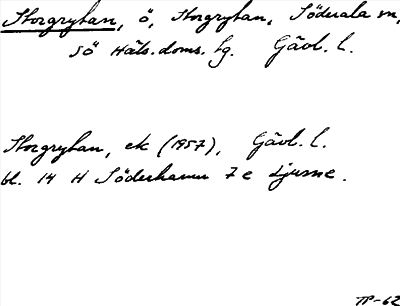 Storgrytan, ö, Storgrytan, Söderala sn,
Sö Häls. doms. tg. Gävl. l.
Storgrytan, ek (1957), Gävl. l.
bl. 14 H Söderhamn 7 e Ljusne.
TP-62